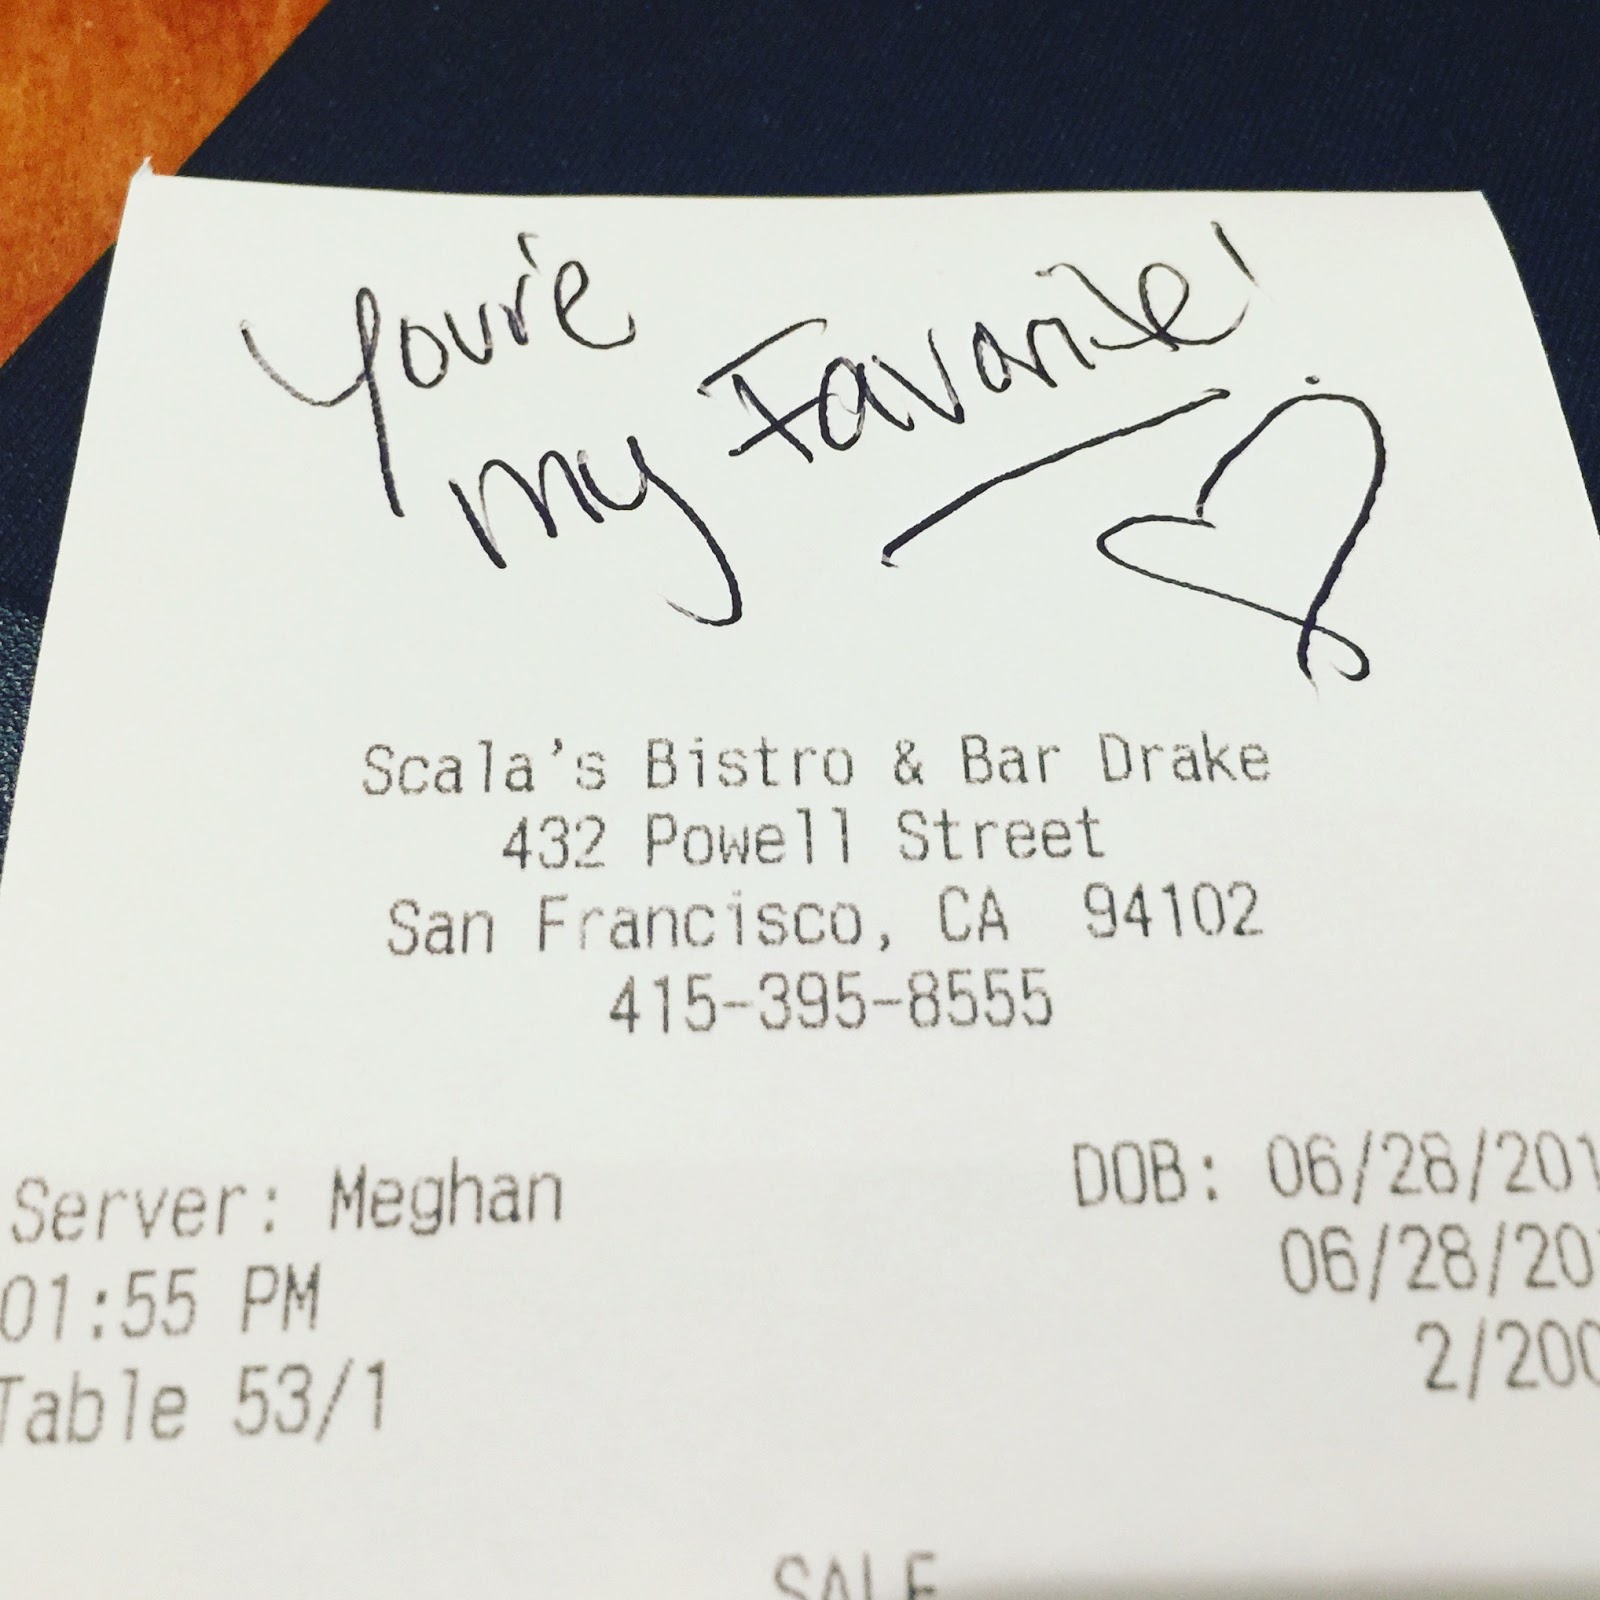 You're
my Favorite!
Scala's Bistro & Bar Drake
432 Powell Street
San Francisco, CA 94102
415-395-8555
Server: Meghan DOB: 06/28/201
01:55 PM 06/28/201
Table 53/1 2/200
SALE